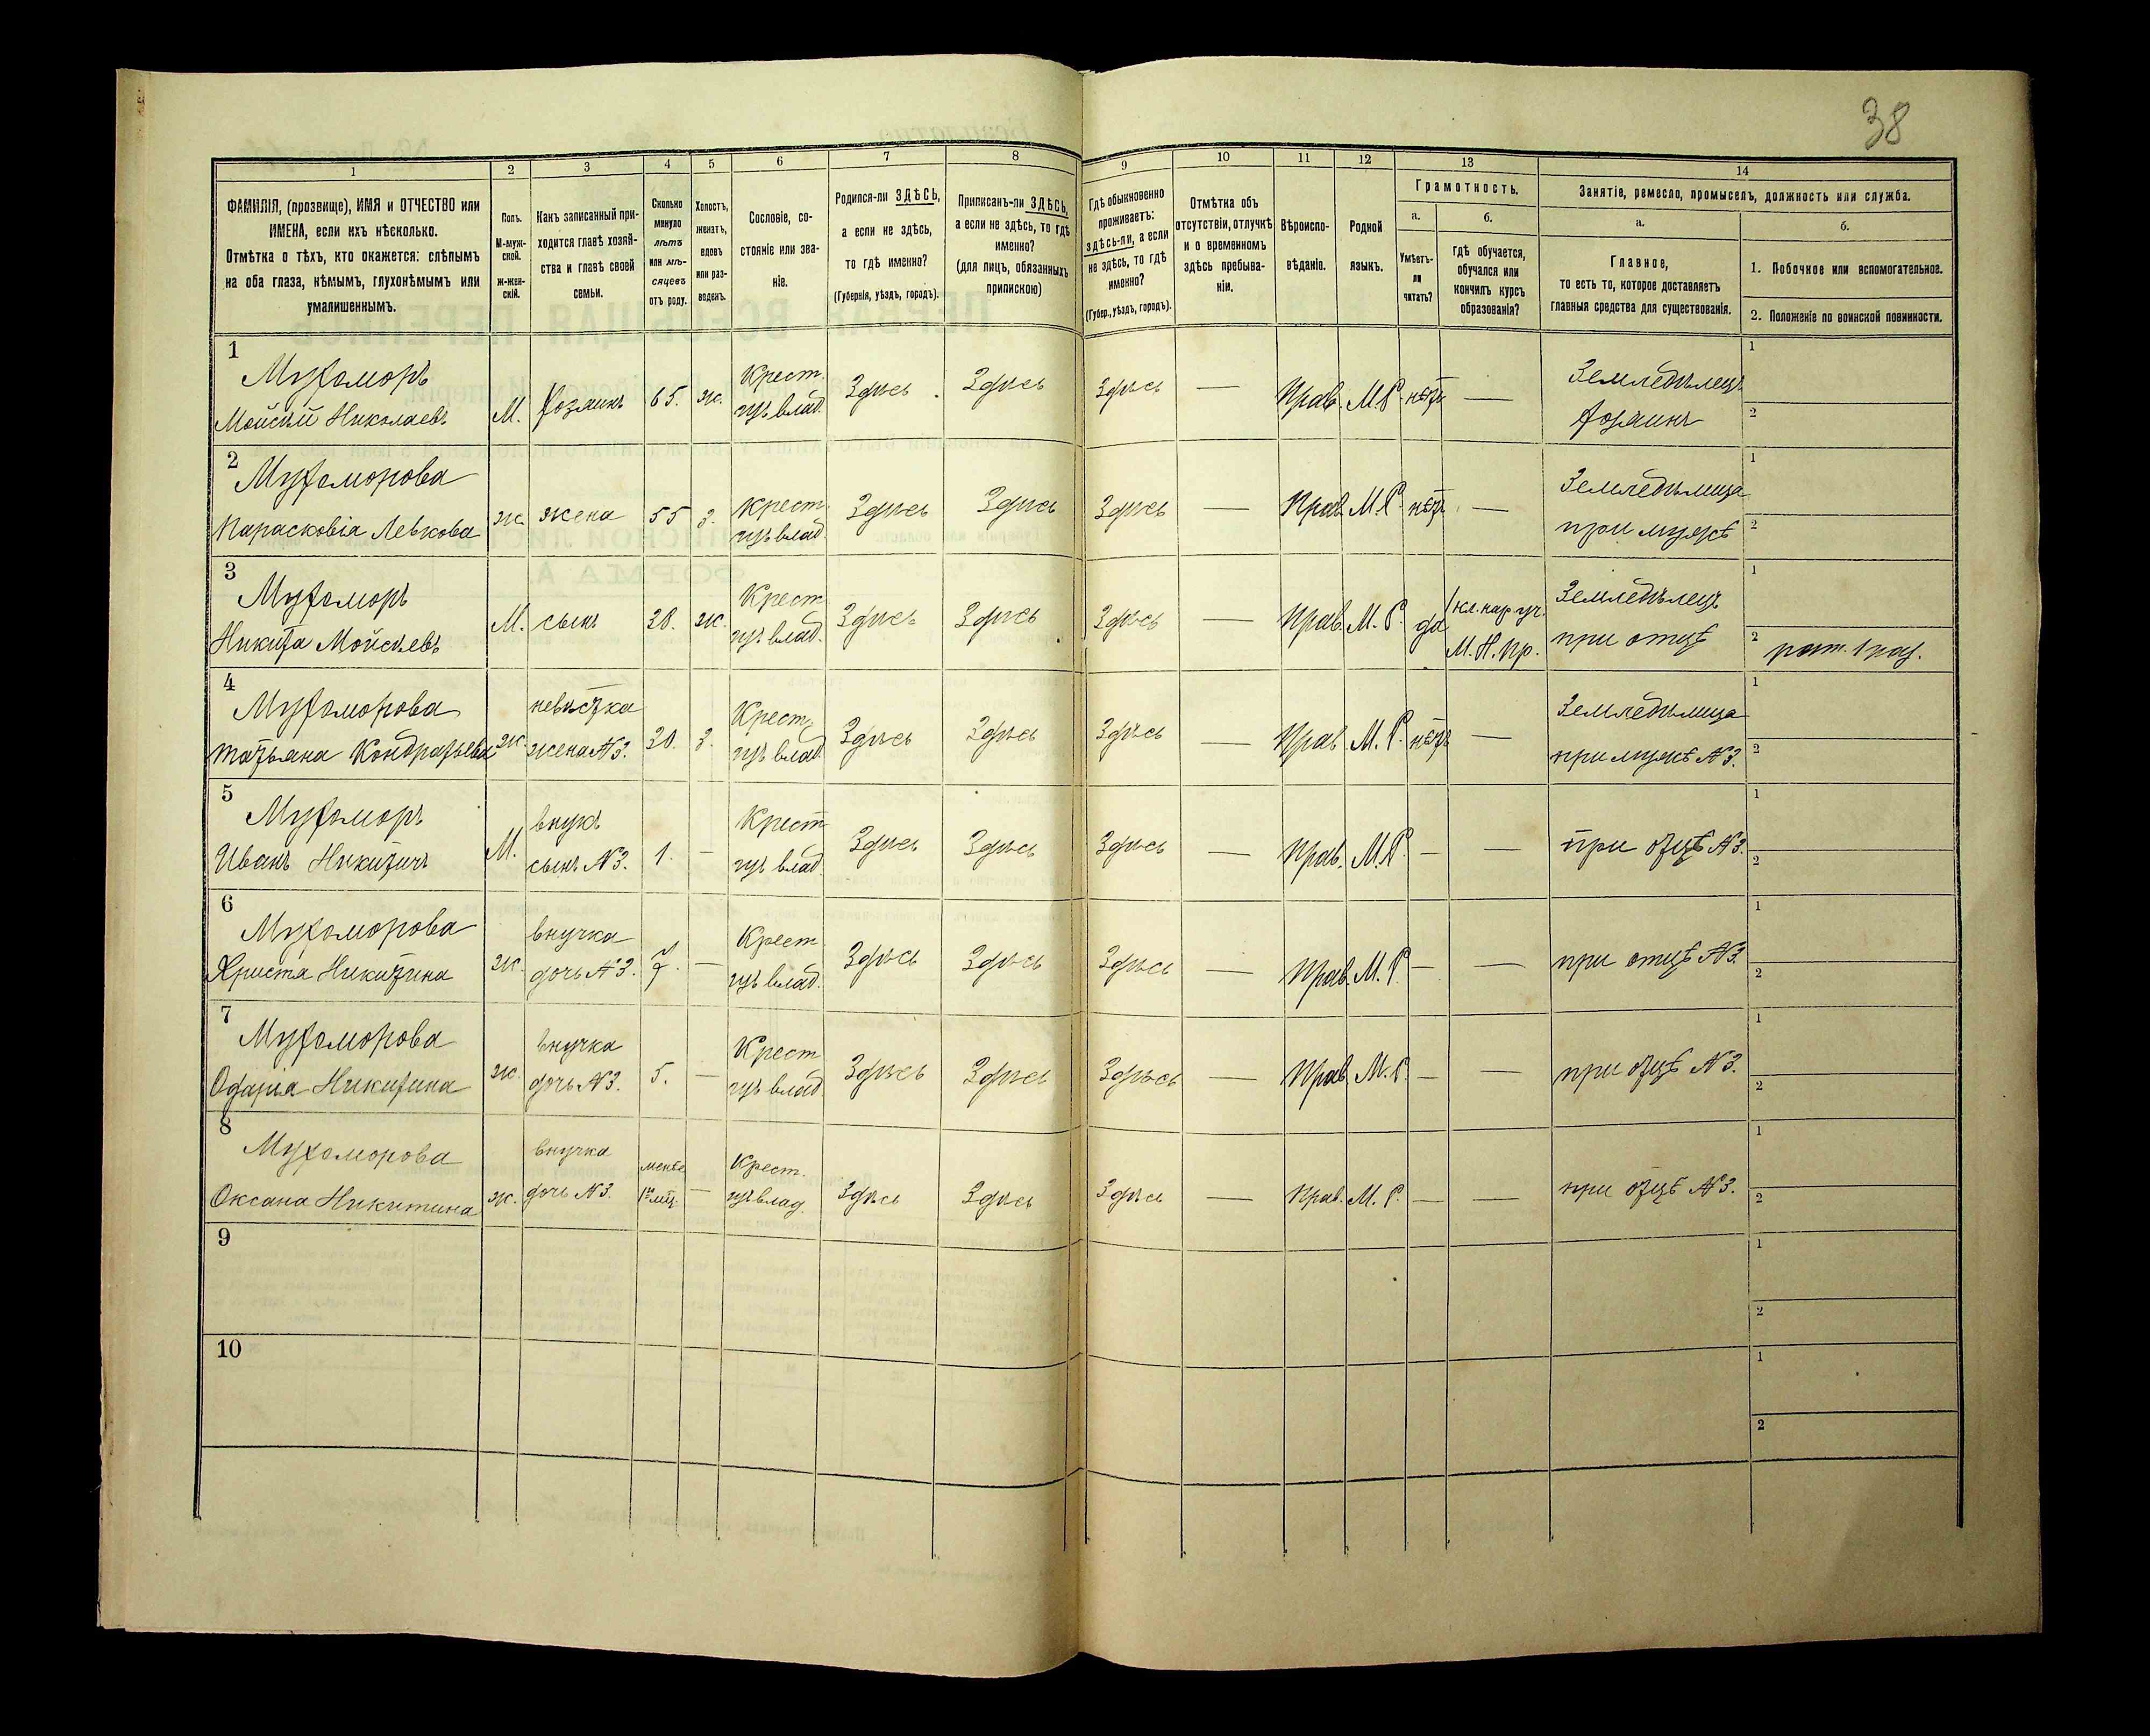 38
1 2 3 4 5 6 7 8 9 10 11 12 13 14
ФАМИЛІЯ, (прозвище), ИМЯ и ОТЧЕСТВО или
ИМЕНА, если ихъ нѣсколько.
Отмѣтка о тѣхъ, кто окажется: слѣпымъ
на оба глаза, нѣмымъ, глухонѣмымъ или
умалишеннымъ.
Полъ.
М-муж-
ской.
ж-жен-
скій.
Какъ записанный при-
ходится главѣ хозяй-
ства и главѣ своей
семьи.
Сколько
минуло
лѣтъ
или мѣ-
сяцевъ
отъ роду.
Холостъ,
женатъ,
вдовъ
или раз-
веденъ.
Сословіе, со-
стояніе или зва-
ніе.
Родился-ли ЗДѢСЬ,
а если не здѣсь,
то гдѣ именно?
(Губернія, уѣздъ, городъ).
Приписанъ-ли ЗДѢСЬ,
а если не здѣсь, то гдѣ
именно?
(для лицъ, обязанныхъ
припискою)
Гдѣ обыкновенно
проживаетъ:
здѣсь-ли, а если
не здѣсь, то гдѣ
именно?
(Губер., уѣздъ, городъ).
Отмѣтка объ
отсутствіи, отлучкѣ
и о временномъ
здѣсь пребыва-
ніи.
Вѣроиспо-
вѣданіе.
Родной
языкъ.
Грамотность.
а.
Умѣетъ-
ли
читать?
б.
гдѣ обучается,
обучался или
кончилъ курсъ
образованія?
Занятіе, ремесло, промыселъ, должность или служба.
а.
Главное,
то есть то, которое доставляетъ
главныя средства для существованія.
б.
1. Побочное или вспомогательное.
2. Положеніе по воинской повинности.
1
Мухоморъ Крест. Здѣсь Здѣсь Здѣсь — Земледѣлецъ 1
Мойсѣй Николаевъ М. Хозяинъ 65. ж. изъ влад. Прав. М.Р. нѣтъ — Хозяинъ 2
2
Мухоморова Крест. Здѣсь Здѣсь Здѣсь — Земледѣлица 1
Парасковія Левкова ж. жена 55 з. изъ влад. Прав. М.Р. нѣтъ — при мужѣ 2
3
Мухоморъ Крест. Здѣсь Здѣсь Здѣсь — 1 кл. нар. уч. Земледѣлецъ 1
Никита Мойсѣевъ М. сынъ ж. изъ влад. Прав. М.Р. да М.Н.Пр. при отцѣ 2 рат. 1 раз.
4
Мухоморова невѣстка Крест. Здѣсь Здѣсь Здѣсь — Земледѣлица 1
Татьяна Кондратьева ж. жена N 3. з. изъ влад. Прав. М.Р. нѣтъ — при мужѣ N 3. 2
5
Мухоморъ внукъ Крест. Здѣсь Здѣсь Здѣсь — 1
Иванъ Никитичъ М. сынъ N 3. 1. — изъ влад. Прав. М.Р. — — при отцѣ N 3. 2
6
Мухоморова внучка Крест. Здѣсь Здѣсь Здѣсь — 1
Христа Никитина ж. дочь N 3. 7. — изъ влад. Прав. М.Р. — — при отцѣ N 3. 2
7
Мухоморова внучка Крест. Здѣсь Здѣсь Здѣсь — 1
Одарія Никитина ж. дочь N 3. 5. — изъ влад. Прав. М.Р. — — при отцѣ N 3. 2
8
Мухоморова внучка менѣе Крест. 1
Оксана Никитина ж. дочь N 3. — изъ влад. Здѣсь Здѣсь Здѣсь — Прав. М.Р. — — при отцѣ N 3. 2
9 1
2
10 1
2